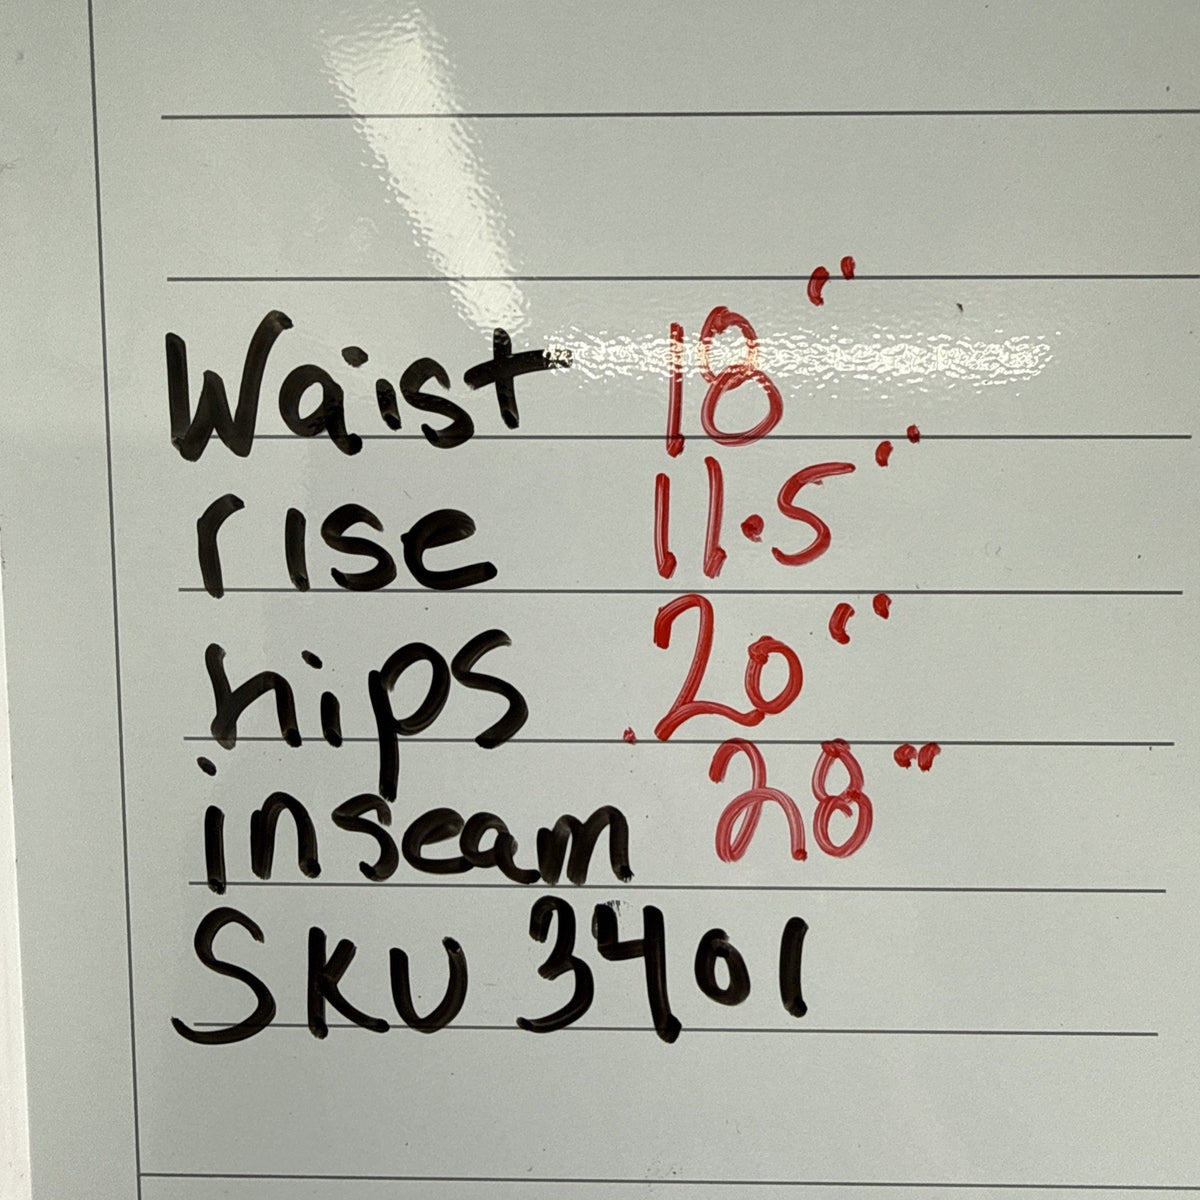 Waist 18"
rise 11.5"
hips 20"
inseam 28"
SKU 3401